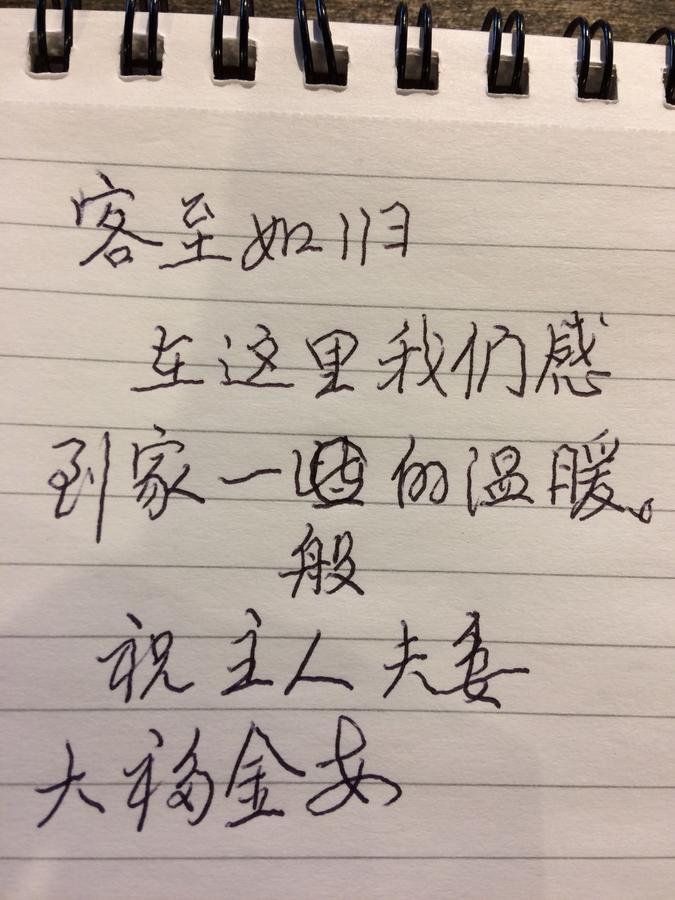 客至如归
在这里我们感
到家一的温暖。
般
祝主人夫妻
大福金安